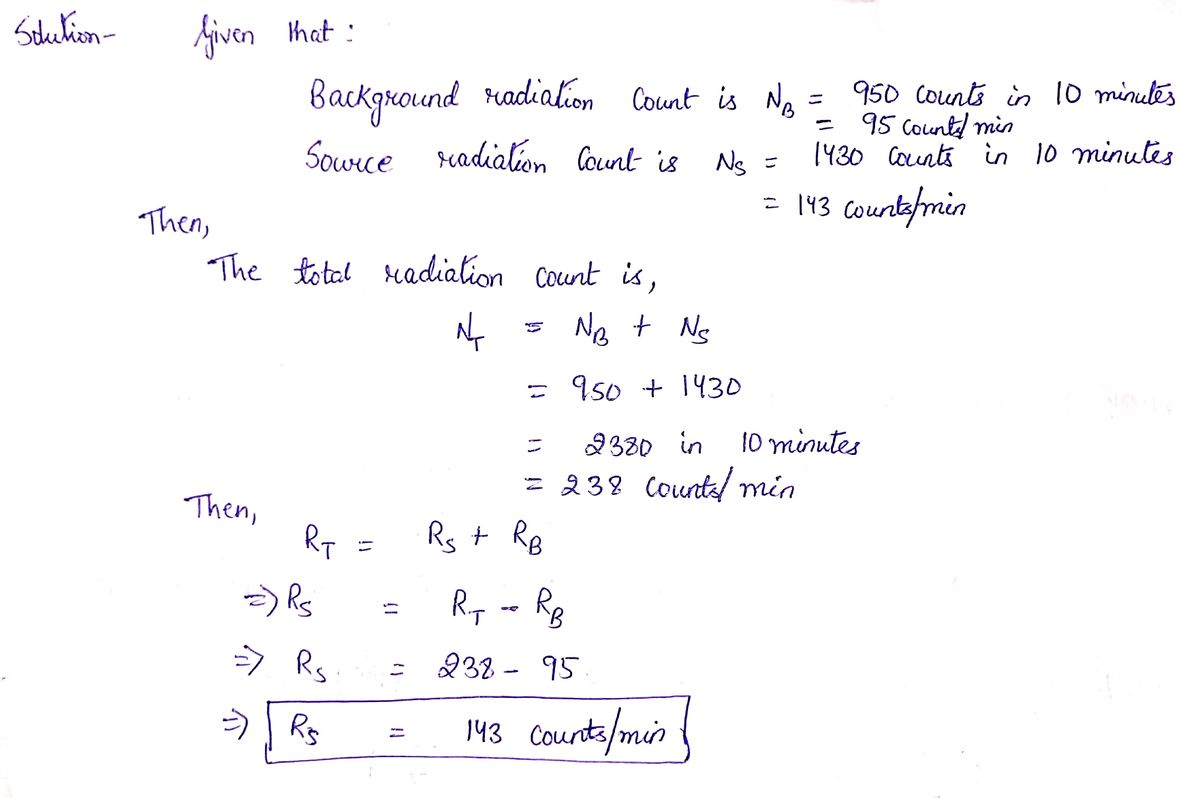 Solution- Given that :
Background radiation Count is N_B = 950 Counts in 10 minutes
= 95 Counts/min
Source radiation Count is N_S = 1430 Counts in 10 minutes
= 143 Counts/min
Then,
The total radiation Count is,
N_T = N_B + N_S
= 950 + 1430
= 2380 in 10 minutes
= 238 Counts/min
Then,
R_T = R_S + R_B
⇒ R_S = R_T - R_B
⇒ R_S = 238 - 95
⇒ R_S = 143 Counts/min